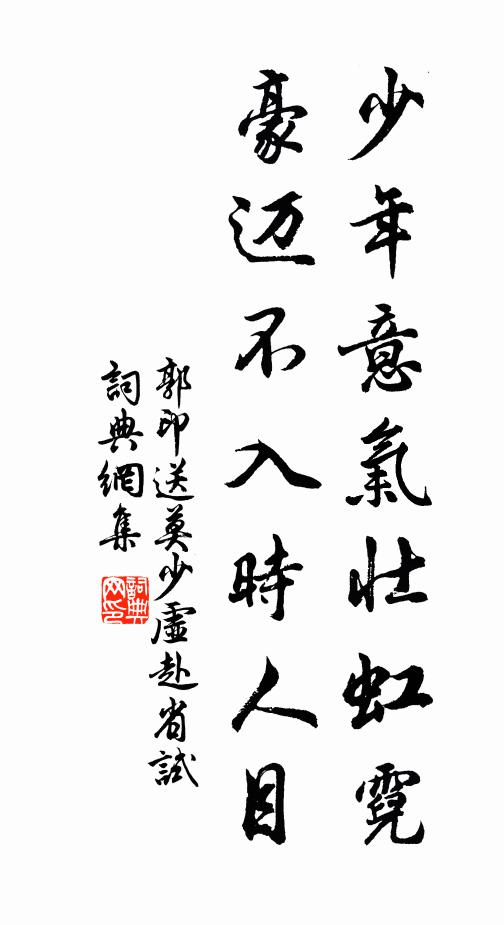 少年意氣壯虹霓
豪迈不入時人目
郭印送莫少虛赴省試
詞典網集
詞典網印